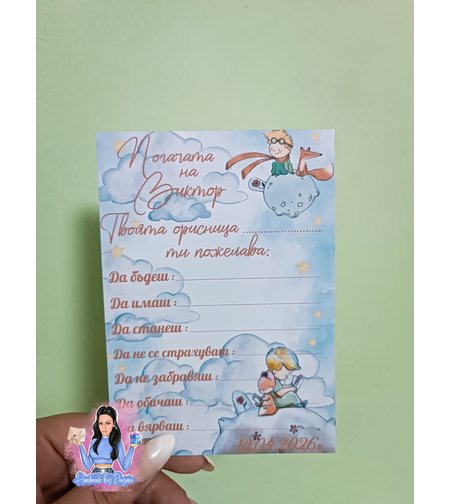 Погачата
на
Виктор
Твоята орисница ........................
ти пожелава:
Да бъдеш :
Да имаш :
Да станеш :
Да не се страхуваш :
Да не забравяш :
Да обичаш :
а вярваш :
.04.2026г.
Handmade by